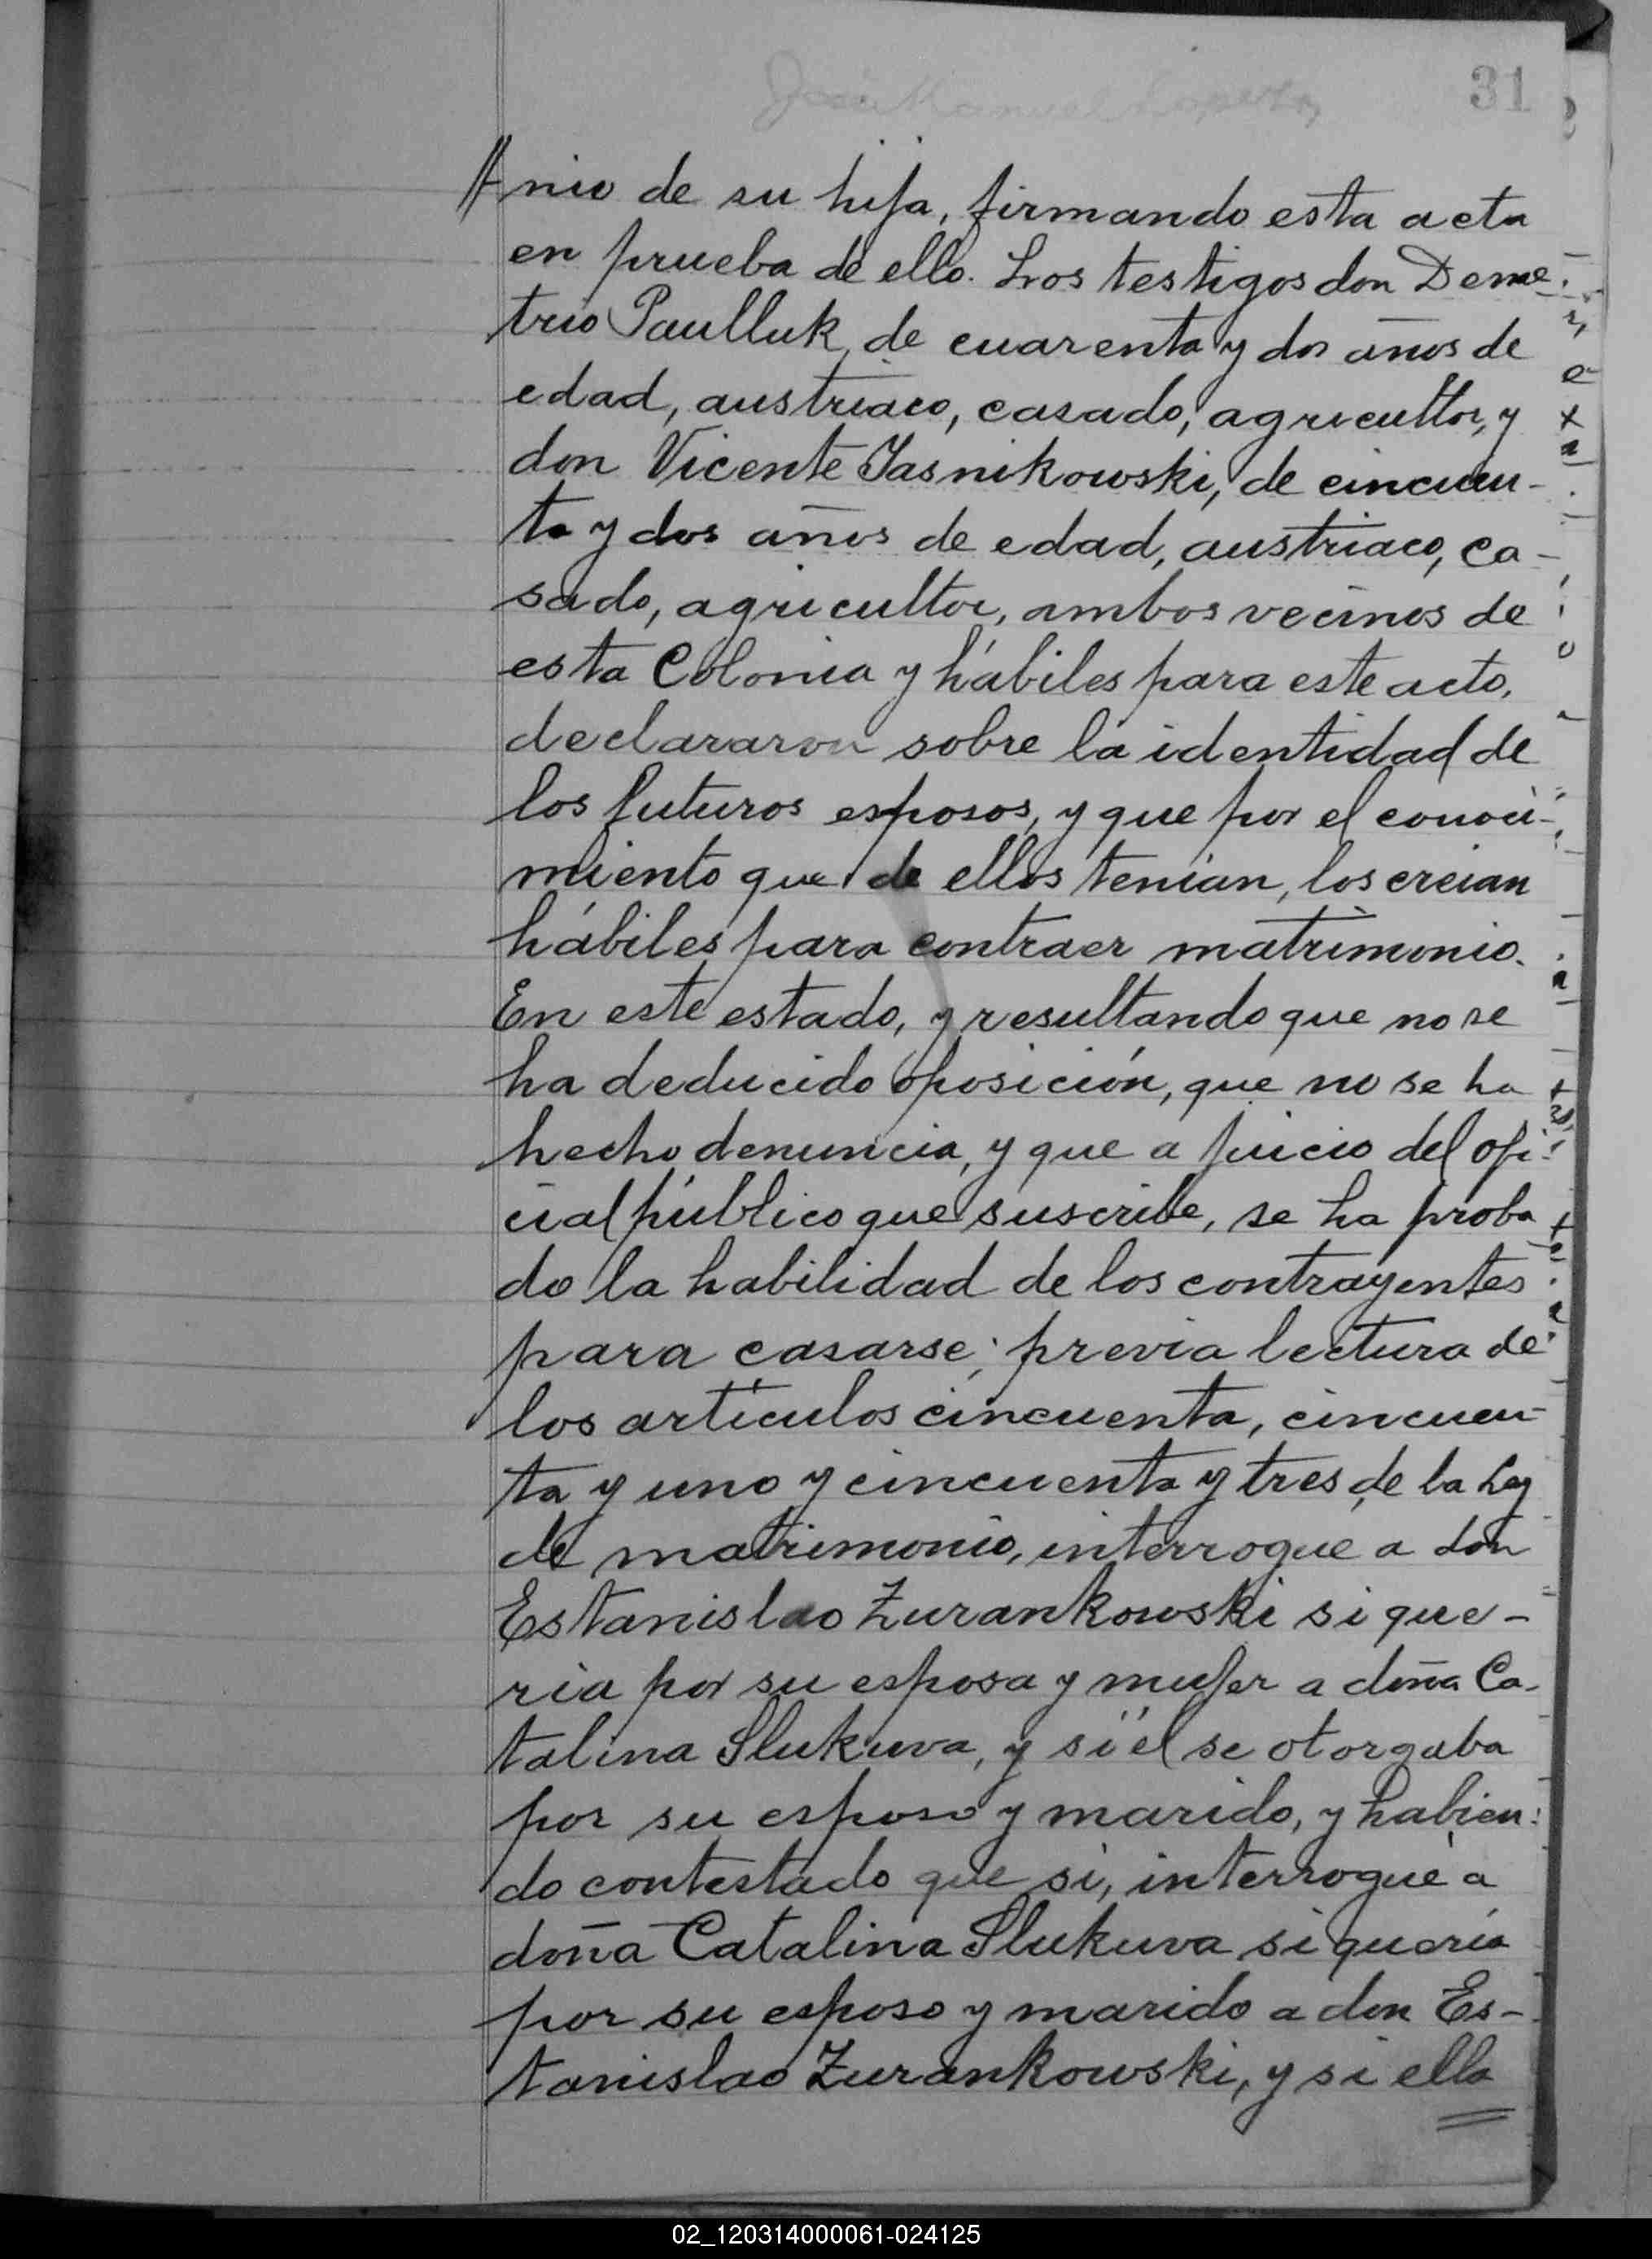 31
nio de su hija, firmando esta acta
en prueba de ello. Los testigos don Deme-
trio Paulluk, de cuarenta y dos años de
edad, austriaco, casado, agricultor, y
don Vicente Jasnikowski, de cincuen-
ta y dos años de edad, austriaco, ca-
sado, agricultor, ambos vecinos de
esta Colonia y hábiles para este acto,
declararon sobre la identidad de
los futuros esposos, y que por el conoci-
miento que de ellos tenian, los creian
hábiles para contraer matrimonio.
En este estado, y resultando que no se
ha deducido oposición, que no se ha
hecho denuncia, y que a juicio del ofi-
cial público que suscribe, se ha proba
do la habilidad de los contrayentes
para casarse; previa lectura de
los artículos cincuenta, cincuen-
ta y uno y cincuenta y tres de la Ley
de matrimonio, interrogué a don
Estanislao Zurankowski si que-
ria por su esposa y mujer a doña Ca-
talina Slukuva, y si él se otorgaba
por su esposo y marido, y habien-
do contestado que si, interrogué a
doña Catalina Slukuva si quería
por su esposo y marido a don Es-
tanislao Zurankowski, y si ella
02_120314000061-024125